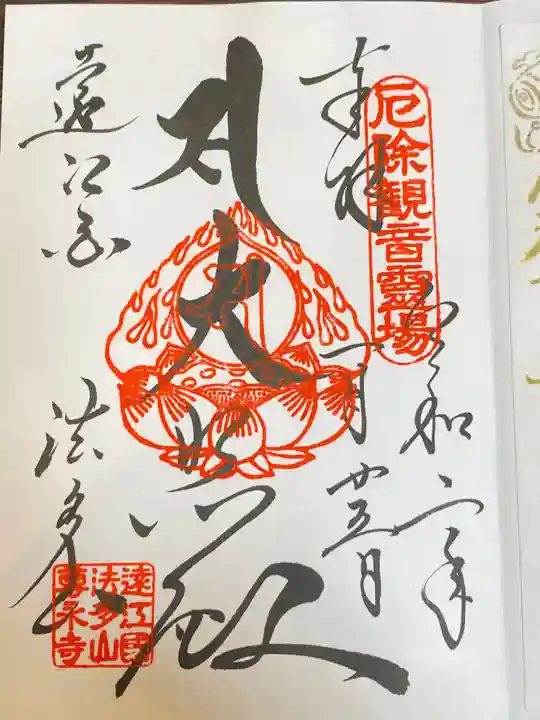 厄除觀音靈場
奉拝
令和二年
一月廿五日
大悲殿
遠江国 法多山
遠江國
法多山
尊永寺